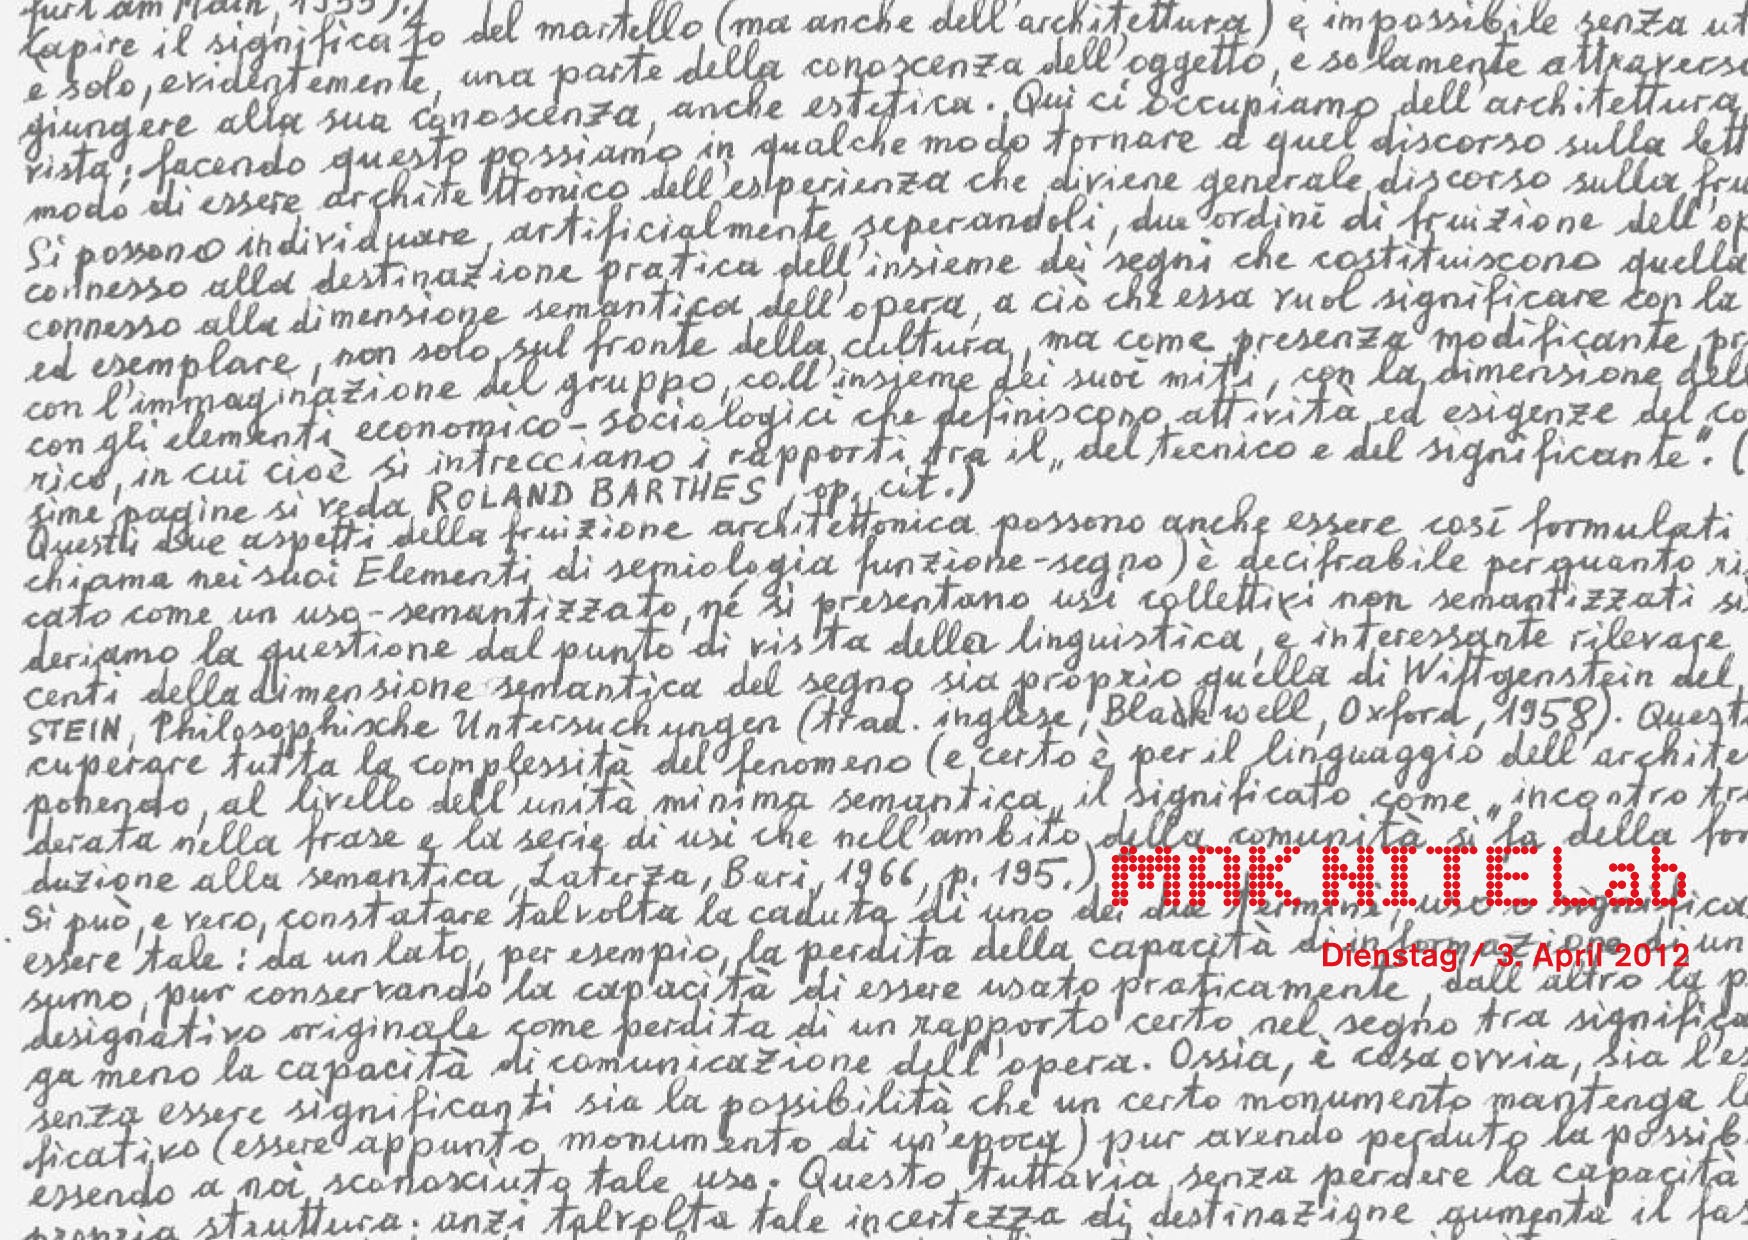 furt am Main, 1955).)
Capire il significato del martello (ma anche dell'architettura) è impossibile senza ut
e solo, evidentemente, una parte della conoscenza dell'oggetto, e solamente attraverso
giungere alla sua conoscenza, anche estetica. Qui ci occupiamo dell'architettura
vista; facendo questo possiamo in qualche modo tornare a quel discorso sulla lett
modo di essere architettonico dell'esperienza che diviene generale discorso sulla fru
Si possono individuare, artificialmente seperandoli, due ordini di fruizione dell'op
connesso alla destinazione pratica dell'insieme dei segni che costituiscono quella
connesso alla dimensione semantica dell'opera, a ciò che essa vuol significare con la
ed esemplare, non solo sul fronte della cultura, ma come presenza modificante, pr
con l'immaginazione del gruppo, coll'insieme dei suoi miti, con la dimensione dell
con gli elementi economico-sociologici che definiscono attività ed esigenze del co
rico, in cui cioè si intrecciano i rapporti tra il „del tecnico e del significante". (
sime pagine si veda ROLAND BARTHES, op. cit.)
Questi due aspetti della fruizione architettonica possono anche essere così formulati
chiama nei suoi Elementi di semiologia funzione-segno) è decifrabile per quanto ri
cato come un uso-semantizzato, né si presentano usi collettivi non semantizzati si
deriamo la questione dal punto di vista della linguistica, e interessante rilevare
centi della dimensione semantica del segno sia proprio quella di Wittgenstein del
STEIN, Philosophische Untersuchungen (trad. inglese, Blackwell, Oxford, 1958). Quest
cuperare tutta la complessità del fenomeno (e certo è per il linguaggio dell'archite
ponendo, al livello dell'unità minima semantica, il significato come „incontro tr
derata nella frase e la serie di usi che nell'ambito della comunità si" fa della for
duzione alla semantica, Laterza, Bari, 1966, p. 195.)
MAK NITE Lab
Si può, e vero, constatare talvolta la caduta di uno dei due termini, uso o significa
essere tale: da un lato, per esempio, la perdita della capacità di informazione di un
Dienstag / 3. April 2012
sumo, pur conservando la capacità di essere usato praticamente, dall'altro la p
designativo originale come perdita di un rapporto certo nel segno tra significa
ga meno la capacità di comunicazione dell'opera. Ossia, è cosa ovvia, sia l'es
senza essere significanti sia la possibilità che un certo monumento mantenga le
ficativo (essere appunto monumento di un'epoca) pur avendo perduto la possib
essendo a noi sconosciuto tale uso. Questo tuttavia senza perdere la capacità
propria struttura; anzi talvolta tale incertezza di destinazione aumenta il fas